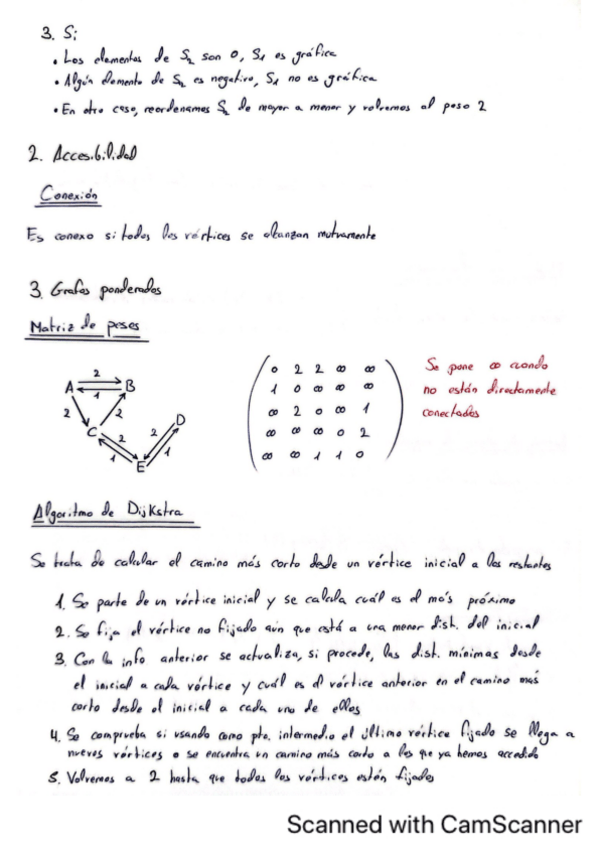 3. Si
• Los elementos de S₂ son 0, S₁ es gráfica
• Algún elemento de S₂ es negativo, S₁ no es gráfica
• En otro caso, reordenamos S₂ de mayor a menor y volvemos al paso 2
2. Accesibilidad
Conexión
Es conexo si todos los vértices se alcanzan mutuamente
3. Grafos ponderados
Matriz de pesos
A 2 1 B
2 C 2 2 1 2 1 D
E
0 2 2 ∞ ∞
1 0 ∞ ∞ ∞
∞ 2 0 ∞ 1
∞ ∞ ∞ 0 2
∞ ∞ 1 1 0
Se pone ∞ cuando
no están directamente
conectados
Algoritmo de Dijkstra
Se trata de calcular el camino más corto desde un vértice inicial a los restantes
1. Se parte de un vértice inicial y se calcula cuál es el más próximo
2. Se fija el vértice no fijado aún que está a una menor dist. del inicial
3. Con la info anterior se actualiza, si procede, las dist. mínimas desde
el inicial a cada vértice y cuál es el vértice anterior en el camino más
corto desde el inicial a cada uno de ellos
4. Se comprueba si usando como pto. intermedio el último vértice fijado se llega a
nuevos vórtices o se encuentra un camino más corto a los que ya hemos accedido
5. Volvemos a 2 hasta que todos los vértices estén fijados
Scanned with CamScanner